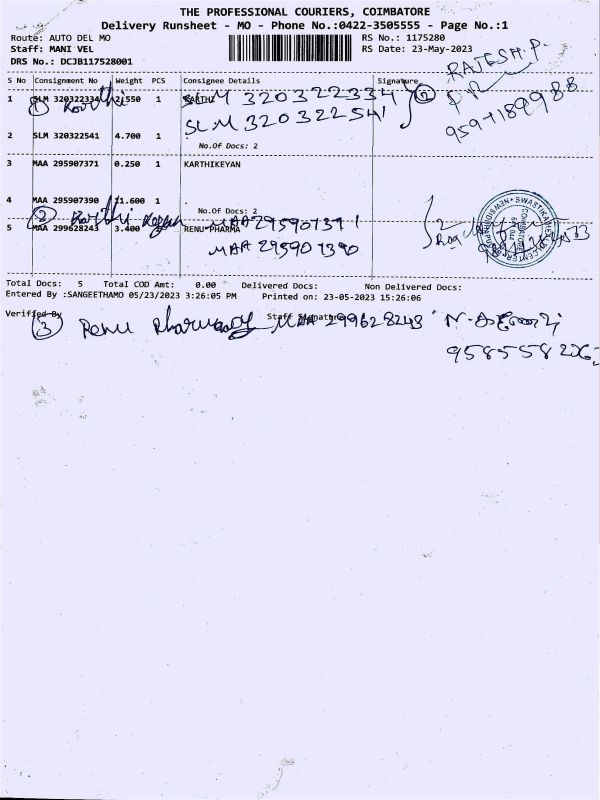 THE PROFESSIONAL COURIERS, COIMBATORE
Delivery Runsheet - MO - Phone No.:0422-3505555 - Page No.:1
Route: AUTO DEL MO
RS No.: 1175280
Staff: MANI VEL
RS Date: 23-May-2023
DRS No.: DCJB117528001
S No Consignment No Weight PCS Consignee Details Signature
RAJESH.P.
1 SLM 320322334 2.550 1 KARTHI
① Karthi SLM 320322334 ②
SLM 320322541
2 SLM 320322541 4.700 1
No.Of Docs: 2
3 MAA 295907371 0.250 1 KARTHIKEYAN
4 MAA 295907390 11.600 1 .
No.Of Docs: 2
② MAA 295907371 2
5 MAA 299628243 3.400 1 RENU PHARMA
MAA 295907390
Total Docs: 5 Total COD Amt: 0.00 Delivered Docs: Non Delivered Docs:
Entered By :SANGEETHAMO 05/23/2023 3:26:05 PM Printed on: 23-05-2023 15:26:06
Verified By Staff Signature
③ Renu Pharmacy MAA 299628243